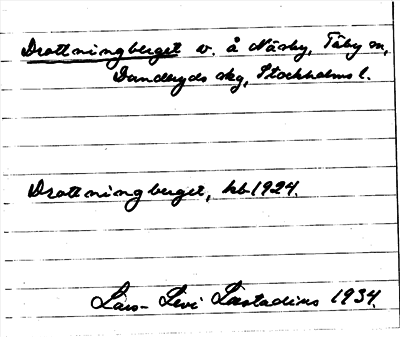 Drottningberget v. å Näsby, Täby sn,
Danderyds skg, Stockholms l.
Drottningberget, hb 1924.
Lars-Levi Læstadius 1934.